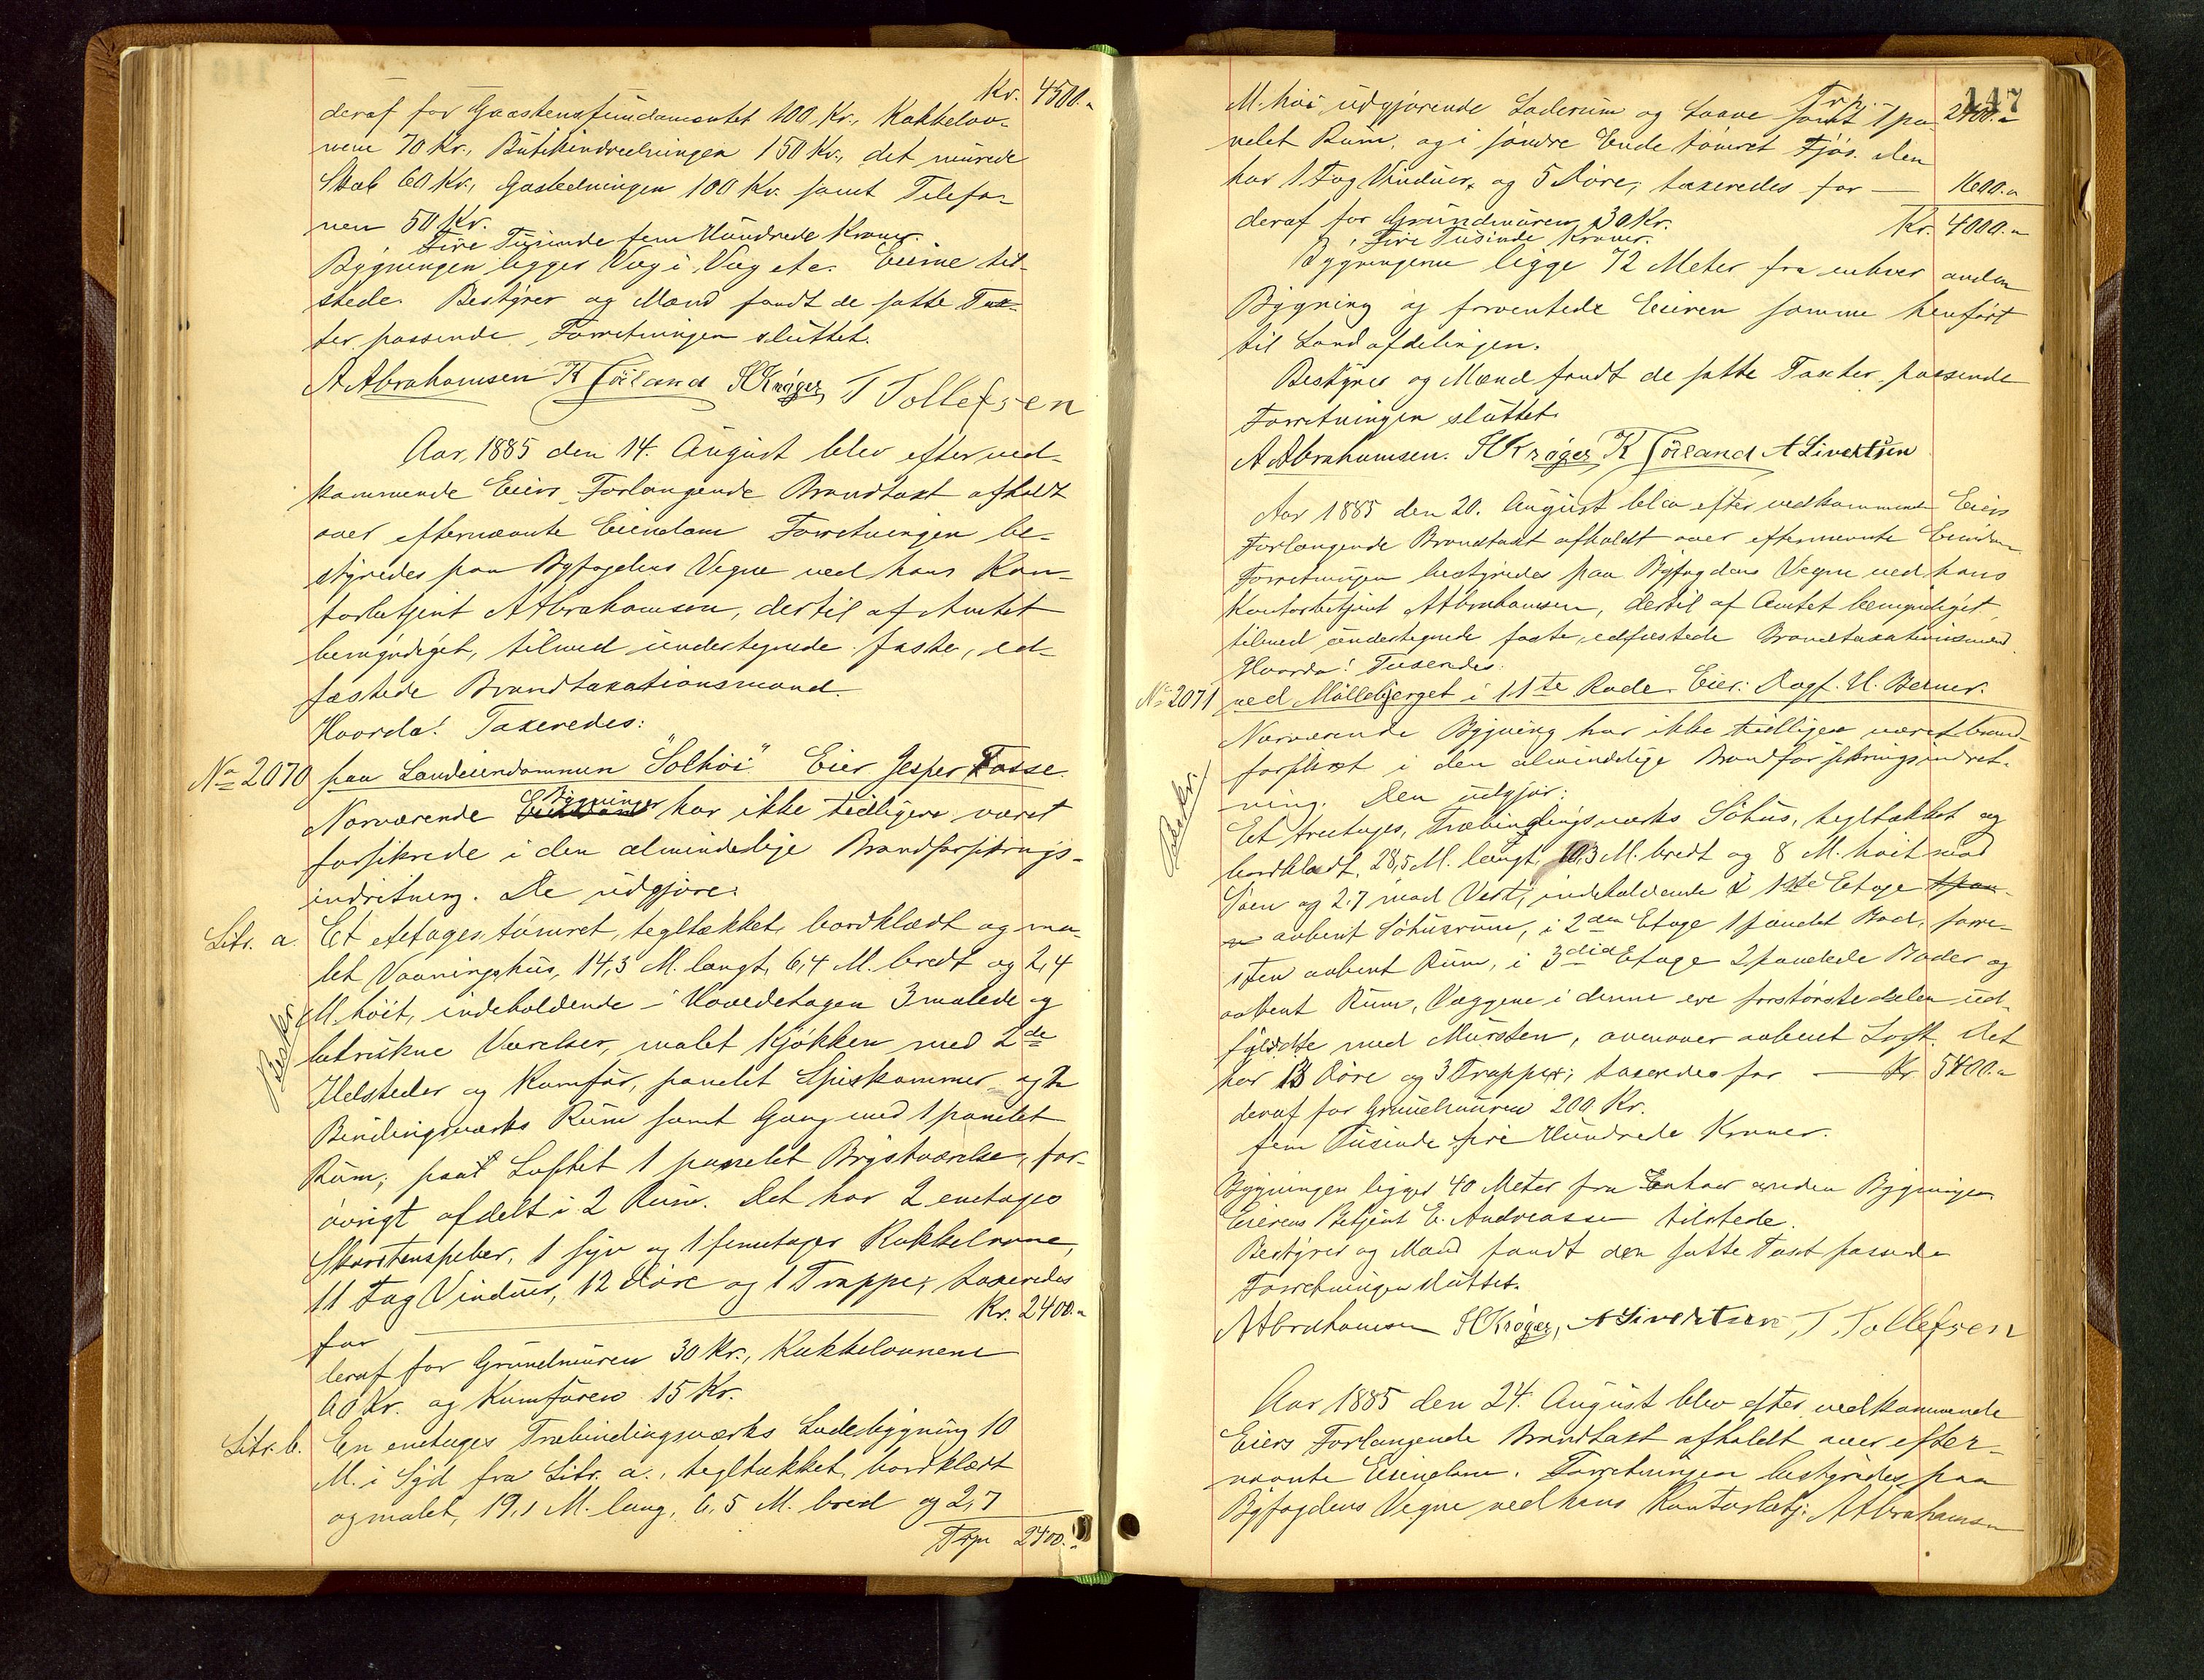 Kr. 4500.-
deraf for Graastensfundamentet 100 Kr., Kakkelov-
nene 70 Kr., Butikindredningen 150 Kr., det murede
Skab 60 Kr., Gasledningen 100 Kr. samt Telefo-
nen 50 Kr.
Fire Tusinde fem Hundrede Kroner.
Bygningen ligger Væg i Væg etc. Eierne til-
stede. Bestyrer og Mænd fandt de satte Tax-
ter passende Forretningen sluttet.
A Abrahamsen K Jörland H Kröger T Tollefsen
Aar 1885 den 14. August blev efter ved-
kommende Eiers Forlangende Brandtaxt afholdt
over efternævnte Eiendom Forretningen be-
styredes paa Byfogdens Vegne ved hans Kon-
torbetjent A Abrahamsen, dertil af Amtet
bemyndiget, tilmed undertegnede faste, ed-
fæstede Brandtaxationsmænd.
Hvorda! Taxeredes:
No 2070 paa Landeiendommen "Solhöi" Eier Jesper Tasse.
Nærværende Bygninger har ikke tidligere været
forsikrede i den almindelige Brandforsikrings-
indretning. De udgjøre:
Litr. a. Et etetages, tömret, tegltækket, bordklædt og ma-
let Vaaningshus, 14,3 M. langt, 6,4 M. bredt og 2,4
M. höit, indeholdende i Hovedetagen 3 malede og
betrukne Værelser, malet Kjökken med 2de
Ildsteder og Kumfur, panelet Spiskammer og
Bindingsværks Rum samt Gang med 1 panelet
Rum; paa Loftet 1 panelet Brystværelse, for-
övrigt afdelt i 2 Rum. Det har 2 enetages
Skorstenspiber, 1 syv og 1 femetages Kakkelovne,
11 Fag Vinduer, 12 Döre og 1 Trappe; taxeredes
for Kr. 2400.-
deraf for Grundmuren 30 Kr., Kakkelovnene
60 Kr. og Kumfuren 15 Kr.
Litr. b. En enetages Træbindingsværks Ladebygning 10
M. i Syd fra Litr. a., tegltækket, bordklædt
og malet, 19,1 M. lang, 6,5 M. bred og 2,7
Trp 2400.-
147
Trp. 2400.-
M. höi udgjörende Laderum og Laave samt 1 pa-
nelet Rum, og i söndre Ende tömret Fjös. Den
har 1 Fag Vinduer og 5 Döre; taxeredes for — 1600.-
deraf for Grundmuren 30 Kr. Kr. 4000.-
Fire Tusinde Kroner.
Bygningerne ligge 72 Meter fra enhver anden
Bygning og forventede Eieren samme henfört
til Landafdelingen.
Bestyrer og Mænd fandt de satte Taxter passende
Forretningen sluttet.
A Abrahamsen. H Kröger K Jörland A Sivertsen
Aar 1885 den 20. August blev efter vedkommende Eiers
Forlangende Brandtaxt afholdt over efternævnte Eiendom
Forretningen bestyredes paa Byfogdens Vegne ved hans
Kontorbetjent A Abrahamsen, dertil af Amtet bemyndiget,
tilmed undertegnede faste, edfæstede Brandtaxationsmænd.
Hvorda! Taxeredes:
No 2071 ved Mölleberget i 11te Rode. Eier: Sagf. U. Berner.
Nærværende Bygning har ikke tidligere været brand-
forsikret i den almindelige Brandforsikringsindret-
ning. Den udgjör:
Et treetages, Træbindingsværks Söhus, tegltækket og
bordklædt, 28,5 M. langt, 10,3 M. bredt og 8 M. höit mod
Söen og 2.7 mod Vest, indeholdende i 1ste Etage
aabent Söhusrum, i 2den Etage 1 panelet Bod, forre-
sten aabent Rum, i 3die Etage 2 panelede Boder og
aabent Rum, Væggene i denne ere forstörstedelen ud-
fyldte med Mursten, ovenover aabent Loft. Det
har 13 Döre og 3 Trapper; taxeredes for — Kr. 5400.-
deraf for Grundmuren 200 Kr.
fem Tusinde fire Hundrede Kroner.
Bygningen ligger 40 Meter fra Enhver anden Bygningen
Eierens Betjent E. Andreassen tilstede.
Bestyrer og Mænd fandt den satte Taxt passende
Forretningen sluttet.
A Abrahamsen H Kröger, A Sivertsen, T. Tollefsen
Aar 1885 den 24. August blev efter vedkommende
Eiers Forlangende Brandtaxt afholdt over efter-
nævnte Eiendom. Forretningen bestyredes paa
Byfogdens Vegne ved hans Kontorbetj. A Abrahamsen